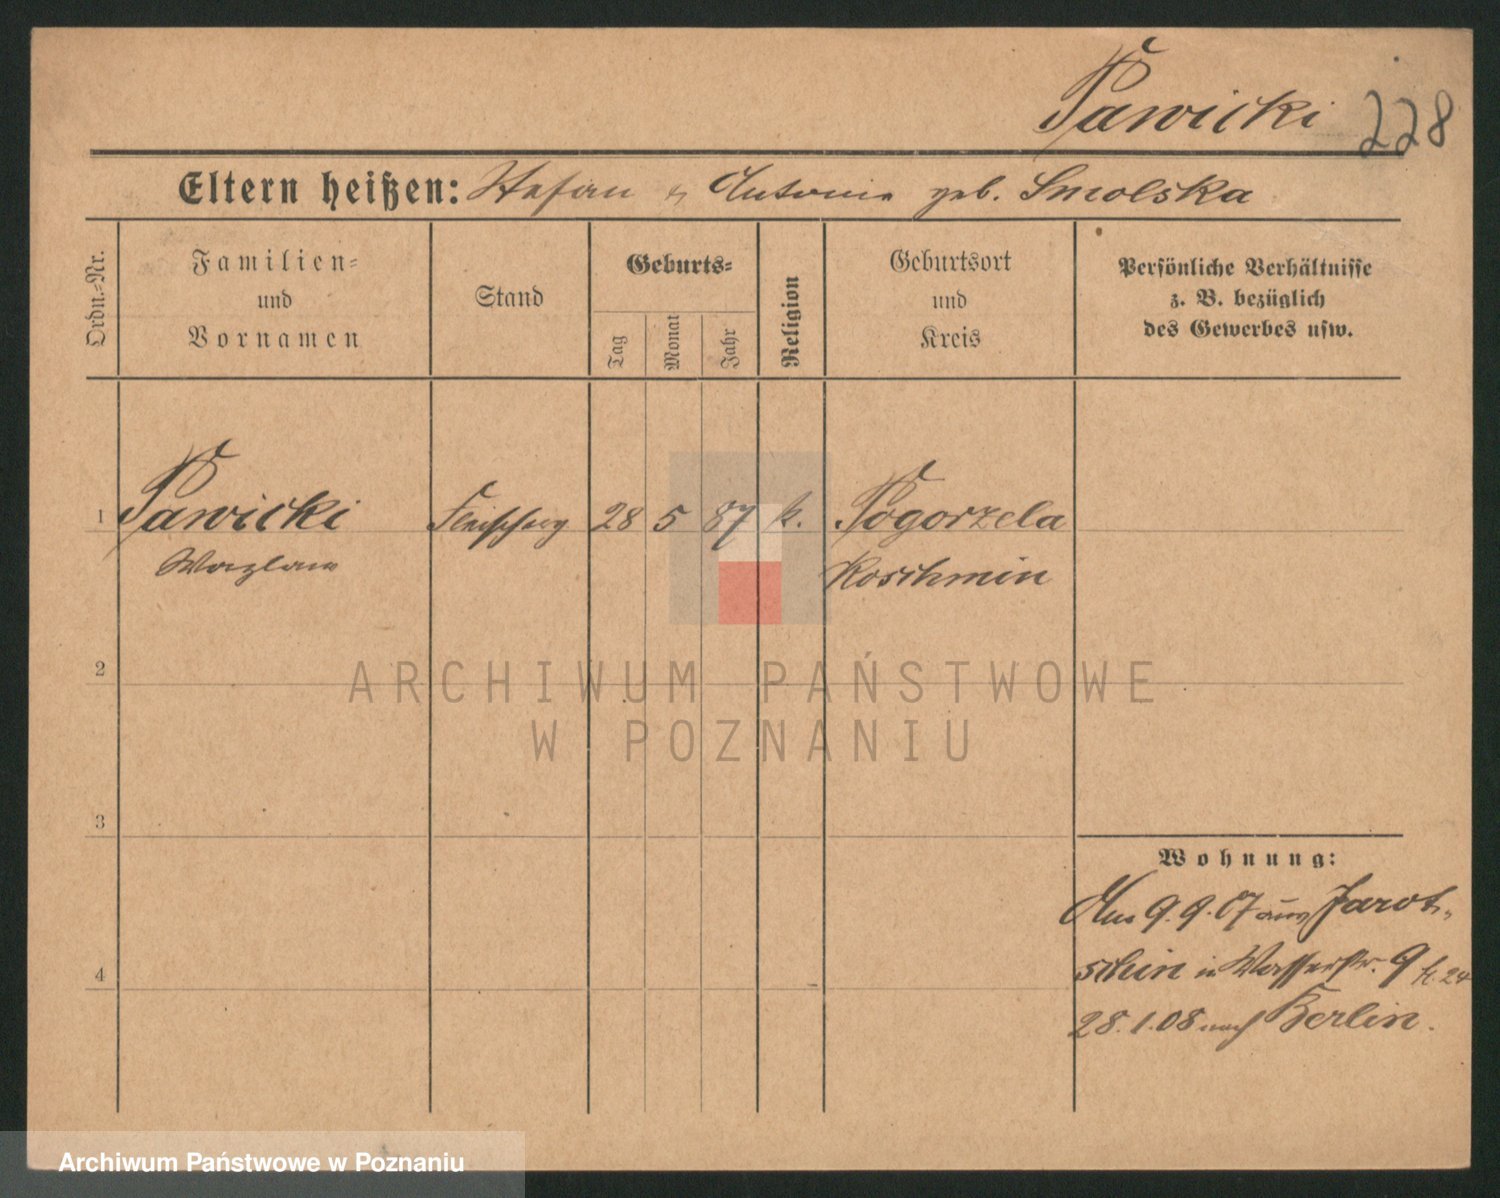 Pawicki 228
Eltern heißen: Stefan & Antonie geb. Smolska
Ordn.-Nr.
Familien-
und
Vornamen
Stand
Geburts-
Tag
Monat
Jahr
Religion
Geburtsort
und
Kreis
Persönliche Verhältnisse
z. B. bezüglich
des Gewerbes usw.
1 Pawicki 28 5 87 k. Pogorzela
Wazlaw Koschmin
2
3
4
Wohnung:
9.9.07 aus Jarot-
schin in Wasserstr. 9 24
28.1.08 nach Berlin.
ARCHIWUM PAŃSTWOWE
W POZNANIU
Archiwum Państwowe w Poznaniu